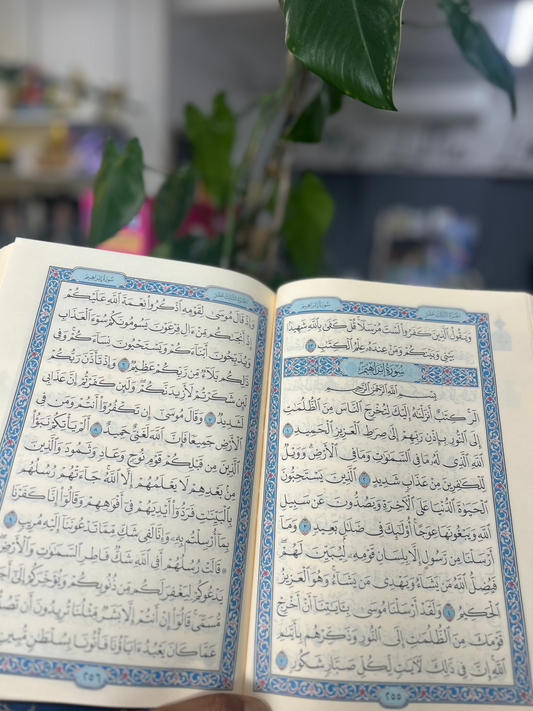 سورة إبراهيم
الجزء الثالث عشر
وَيَقُولُ الَّذِينَ كَفَرُوا لَسْتَ مُرْسَلًا قُلْ كَفَىٰ بِاللَّهِ شَهِيدًا
بَيْنِي وَبَيْنَكُمْ وَمَنْ عِندَهُ عِلْمُ الْكِتَابِ ٤٣
سُورَةُ إِبْرَاهِيمَ
بِسْمِ اللَّهِ الرَّحْمَٰنِ الرَّحِيمِ
الر كِتَابٌ أَنزَلْنَاهُ إِلَيْكَ لِتُخْرِجَ النَّاسَ مِنَ الظُّلُمَاتِ
إِلَى النُّورِ بِإِذْنِ رَبِّهِمْ إِلَىٰ صِرَاطِ الْعَزِيزِ الْحَمِيدِ ١
اللَّهِ الَّذِي لَهُ مَا فِي السَّمَاوَاتِ وَمَا فِي الْأَرْضِ وَوَيْلٌ
لِّلْكَافِرِينَ مِنْ عَذَابٍ شَدِيدٍ ٢ الَّذِينَ يَسْتَحِبُّونَ
الْحَيَاةَ الدُّنْيَا عَلَى الْآخِرَةِ وَيَصُدُّونَ عَن سَبِيلِ
اللَّهِ وَيَبْغُونَهَا عِوَجًا أُولَٰئِكَ فِي ضَلَالٍ بَعِيدٍ ٣ وَمَا
أَرْسَلْنَا مِن رَّسُولٍ إِلَّا بِلِسَانِ قَوْمِهِ لِيُبَيِّنَ لَهُمْ
فَيُضِلُّ اللَّهُ مَن يَشَاءُ وَيَهْدِي مَن يَشَاءُ وَهُوَ الْعَزِيزُ
الْحَكِيمُ ٤ وَلَقَدْ أَرْسَلْنَا مُوسَىٰ بِآيَاتِنَا أَنْ أَخْرِجْ
قَوْمَكَ مِنَ الظُّلُمَاتِ إِلَى النُّورِ وَذَكِّرْهُم بِأَيَّامِ
اللَّهِ إِنَّ فِي ذَٰلِكَ لَآيَاتٍ لِّكُلِّ صَبَّارٍ شَكُورٍ ٥
٢٥٥
سورة إبراهيم
الجزء الثالث عشر
وَإِذْ قَالَ مُوسَىٰ لِقَوْمِهِ اذْكُرُوا نِعْمَةَ اللَّهِ عَلَيْكُمْ
إِذْ أَنجَاكُم مِّنْ آلِ فِرْعَوْنَ يَسُومُونَكُمْ سُوءَ الْعَذَابِ
وَيُذَبِّحُونَ أَبْنَاءَكُمْ وَيَسْتَحْيُونَ نِسَاءَكُمْ وَفِي
ذَٰلِكُم بَلَاءٌ مِّن رَّبِّكُمْ عَظِيمٌ ٦ وَإِذْ تَأَذَّنَ رَبُّكُمْ
لَئِن شَكَرْتُمْ لَأَزِيدَنَّكُمْ وَلَئِن كَفَرْتُمْ إِنَّ عَذَابِي
لَشَدِيدٌ ٧ وَقَالَ مُوسَىٰ إِن تَكْفُرُوا أَنتُمْ وَمَن فِي
الْأَرْضِ جَمِيعًا فَإِنَّ اللَّهَ لَغَنِيٌّ حَمِيدٌ ٨ أَلَمْ يَأْتِكُمْ نَبَأُ
الَّذِينَ مِن قَبْلِكُمْ قَوْمِ نُوحٍ وَعَادٍ وَثَمُودَ وَالَّذِينَ
مِن بَعْدِهِمْ لَا يَعْلَمُهُمْ إِلَّا اللَّهُ جَاءَتْهُمْ رُسُلُهُم
بِالْبَيِّنَاتِ فَرَدُّوا أَيْدِيَهُمْ فِي أَفْوَاهِهِمْ وَقَالُوا إِنَّا كَفَرْنَا
بِمَا أُرْسِلْتُم بِهِ وَإِنَّا لَفِي شَكٍّ مِّمَّا تَدْعُونَنَا إِلَيْهِ مُرِيبٍ ٩
قَالَتْ رُسُلُهُمْ أَفِي اللَّهِ شَكٌّ فَاطِرِ السَّمَاوَاتِ وَالْأَرْضِ
يَدْعُوكُمْ لِيَغْفِرَ لَكُم مِّن ذُنُوبِكُمْ وَيُؤَخِّرَكُمْ إِلَىٰ أَجَلٍ
مُّسَمًّى قَالُوا إِنْ أَنتُمْ إِلَّا بَشَرٌ مِّثْلُنَا تُرِيدُونَ أَن تَصُدُّونَا
عَمَّا كَانَ يَعْبُدُ آبَاؤُنَا فَأْتُونَا بِسُلْطَانٍ مُّبِينٍ
٢٥٦